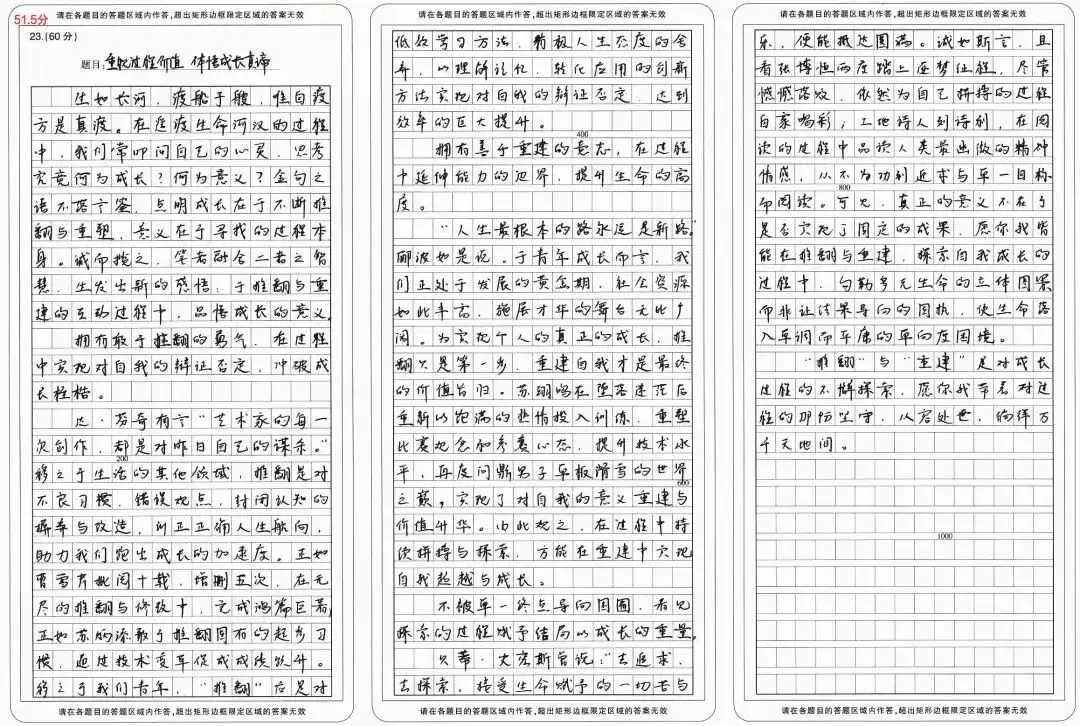 51.5分
请在各题目的答题区域内作答,超出矩形边框限定区域的答案无效
23.(60分)
题目:重视过程价值 体悟成长真谛
生如长河，渡船千艘，惟自渡
方是真渡。在迢渡生命河汉的过程
中，我们常叩问自己的心灵，思考
究竟何为成长？何为意义？金句之
语不落言筌，点明成长在于不断推
翻与重塑，意义在于寻找的过程本
身。诚而揽之，笔者融合二者之智
慧，生发出新的感悟：于推翻与重
建的互动过程中，品悟成长的意义。
拥有敢于推翻的勇气，在过程
中实现对自我的辩证否定，冲破成
长桎梏。
达·芬奇有言“艺术家的每一
次创作，都是对昨日自己的谋杀。”
200
移之于生活的其他领域，推翻是对
不良习惯、错误观点、封闭认知的
摒弃与改造，纠正正偏人生航向，
助力我们跑出成长的加速度。正如
曹雪芹批阅十载，增删五次，在无
尽的推翻与修改中，完成鸿篇巨著，
正如苏炳添敢于推翻固有的起步习
惯，通过技术变革促成成绩跃升。
移之于我们青年，“推翻”应是对
请在各题目的答题区域内作答,超出矩形边框限定区域的答案无效
请在各题目的答题区域内作答,超出矩形边框限定区域的答案无效
低效学习方法、消极人生态度的舍
弃，以理解记忆、转化应用的创新
方法实现对自我的辩证否定，达到
效率的巨大提升。
400
拥有善于重建的意志，在过程
中延伸能力的边界，提升生命的高
度。
“人生最根本的路永远是新路。”
郦波如是说。于青年成长而言，我
们正处于发展的黄金期，社会资源
如此丰富，施展才华的舞台无比广
阔。为实现个人的真正的成长，推
翻只是第一步，重建自我才是最终
的价值旨归。苏翊鸣在堕落迷茫后
重新以饱满的热情投入训练，重塑
比赛观念和参赛心态，提升技术水
平，再度问鼎男子单板滑雪的世界
600
之巅，实现了对自我的意义重建与
价值升华。由此观之，在过程中持
续拼搏与探索，方能在重建中实现
自我超越与成长。
不被单一终点导向囹圄，看见
探索的过程赋予结局以成长的重量。
久蒂·大宏斯曾说：“去追求，
去探索，接受生命赋予的一切苦与
请在各题目的答题区域内作答,超出矩形边框限定区域的答案无效
请在各题目的答题区域内作答,超出矩形边框限定区域的答案无效
乐，便能抵达圆满。诚如斯言，且
看张博恒两度踏上逐梦征程，尽管
憾憾落败，依然为自己拼搏的过程
自豪喝彩；工地诗人刘诗利，在阅
读的过程中品读人类最幽微的精神
情感，从不为功利追求与单一目标
800
而阅读。可见，真正的意义不在于
是否实现了固定的成果，愿你我皆
能在推翻与重建、探索自我成长的
过程中，勾勒多元生命的立体图景
而非让结果导向的固执，使生命落
入单调而平庸的单向度困境。
“推翻”与“重建”是对成长
过程的不懈探索，愿你我享着对过
程的那份坚守，从容处世，徜徉万
千天地间。
1000
请在各题目的答题区域内作答,超出矩形边框限定区域的答案无效